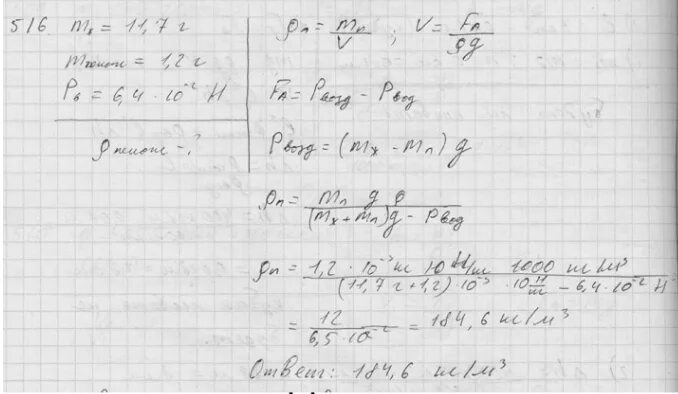 516 mₓ = 11,7 г
mпеноп = 1,2 г
Pв = 6,4 · 10⁻² Н
ρпеноп - ?
ρп = mп / V ; V = Fₐ / ρg
Fₐ = Pвозд - Pвод
Pвозд = (mₓ - mп) g
ρп = mп g ρ / (mₓ + mп)g - Pвод
ρп = 1,2 · 10⁻³ кг 10 Н/кг 1000 кг/м³ / (11,7 г + 1,2) · 10⁻³ · 10 Н/кг - 6,4 · 10⁻² Н
= 12 / 6,5 · 10⁻² = 184,6 кг/м³
Ответ: 184,6 кг/м³